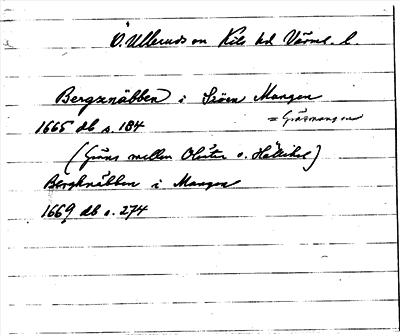 Ö. Ullerud sn Kils hd Värml. l.
Bergznäbben i Siöen Mangen
1665 db s. 184 = Gräsmangen
(Gräns mellan Olsäter o. Hällekil)
Bergknäbben i Mangen
1669 db s. 274